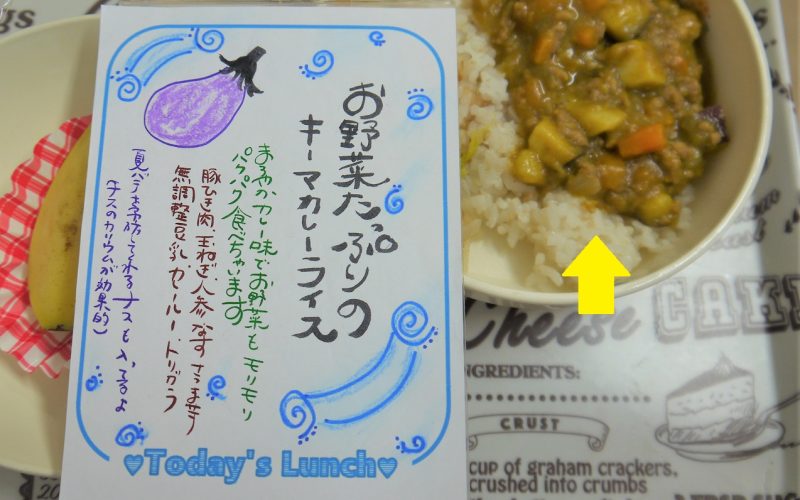 お野菜たっぷりの
キーマカレーライス
まろやカレー味でお野菜もモリモリ
パクパク食べちゃいます
豚ひき肉、玉ねぎ、人参、なす、さつま芋
無調整豆乳、カレールー、トリガラ
夏バテを予防してくれるナスも入ってるよ
(ナスのカリウムが効果的)
Today's Lunch
Cheese CAKE
INGREDIENTS:
CRUST
CUP of graham crackers,
crushed into crumbs